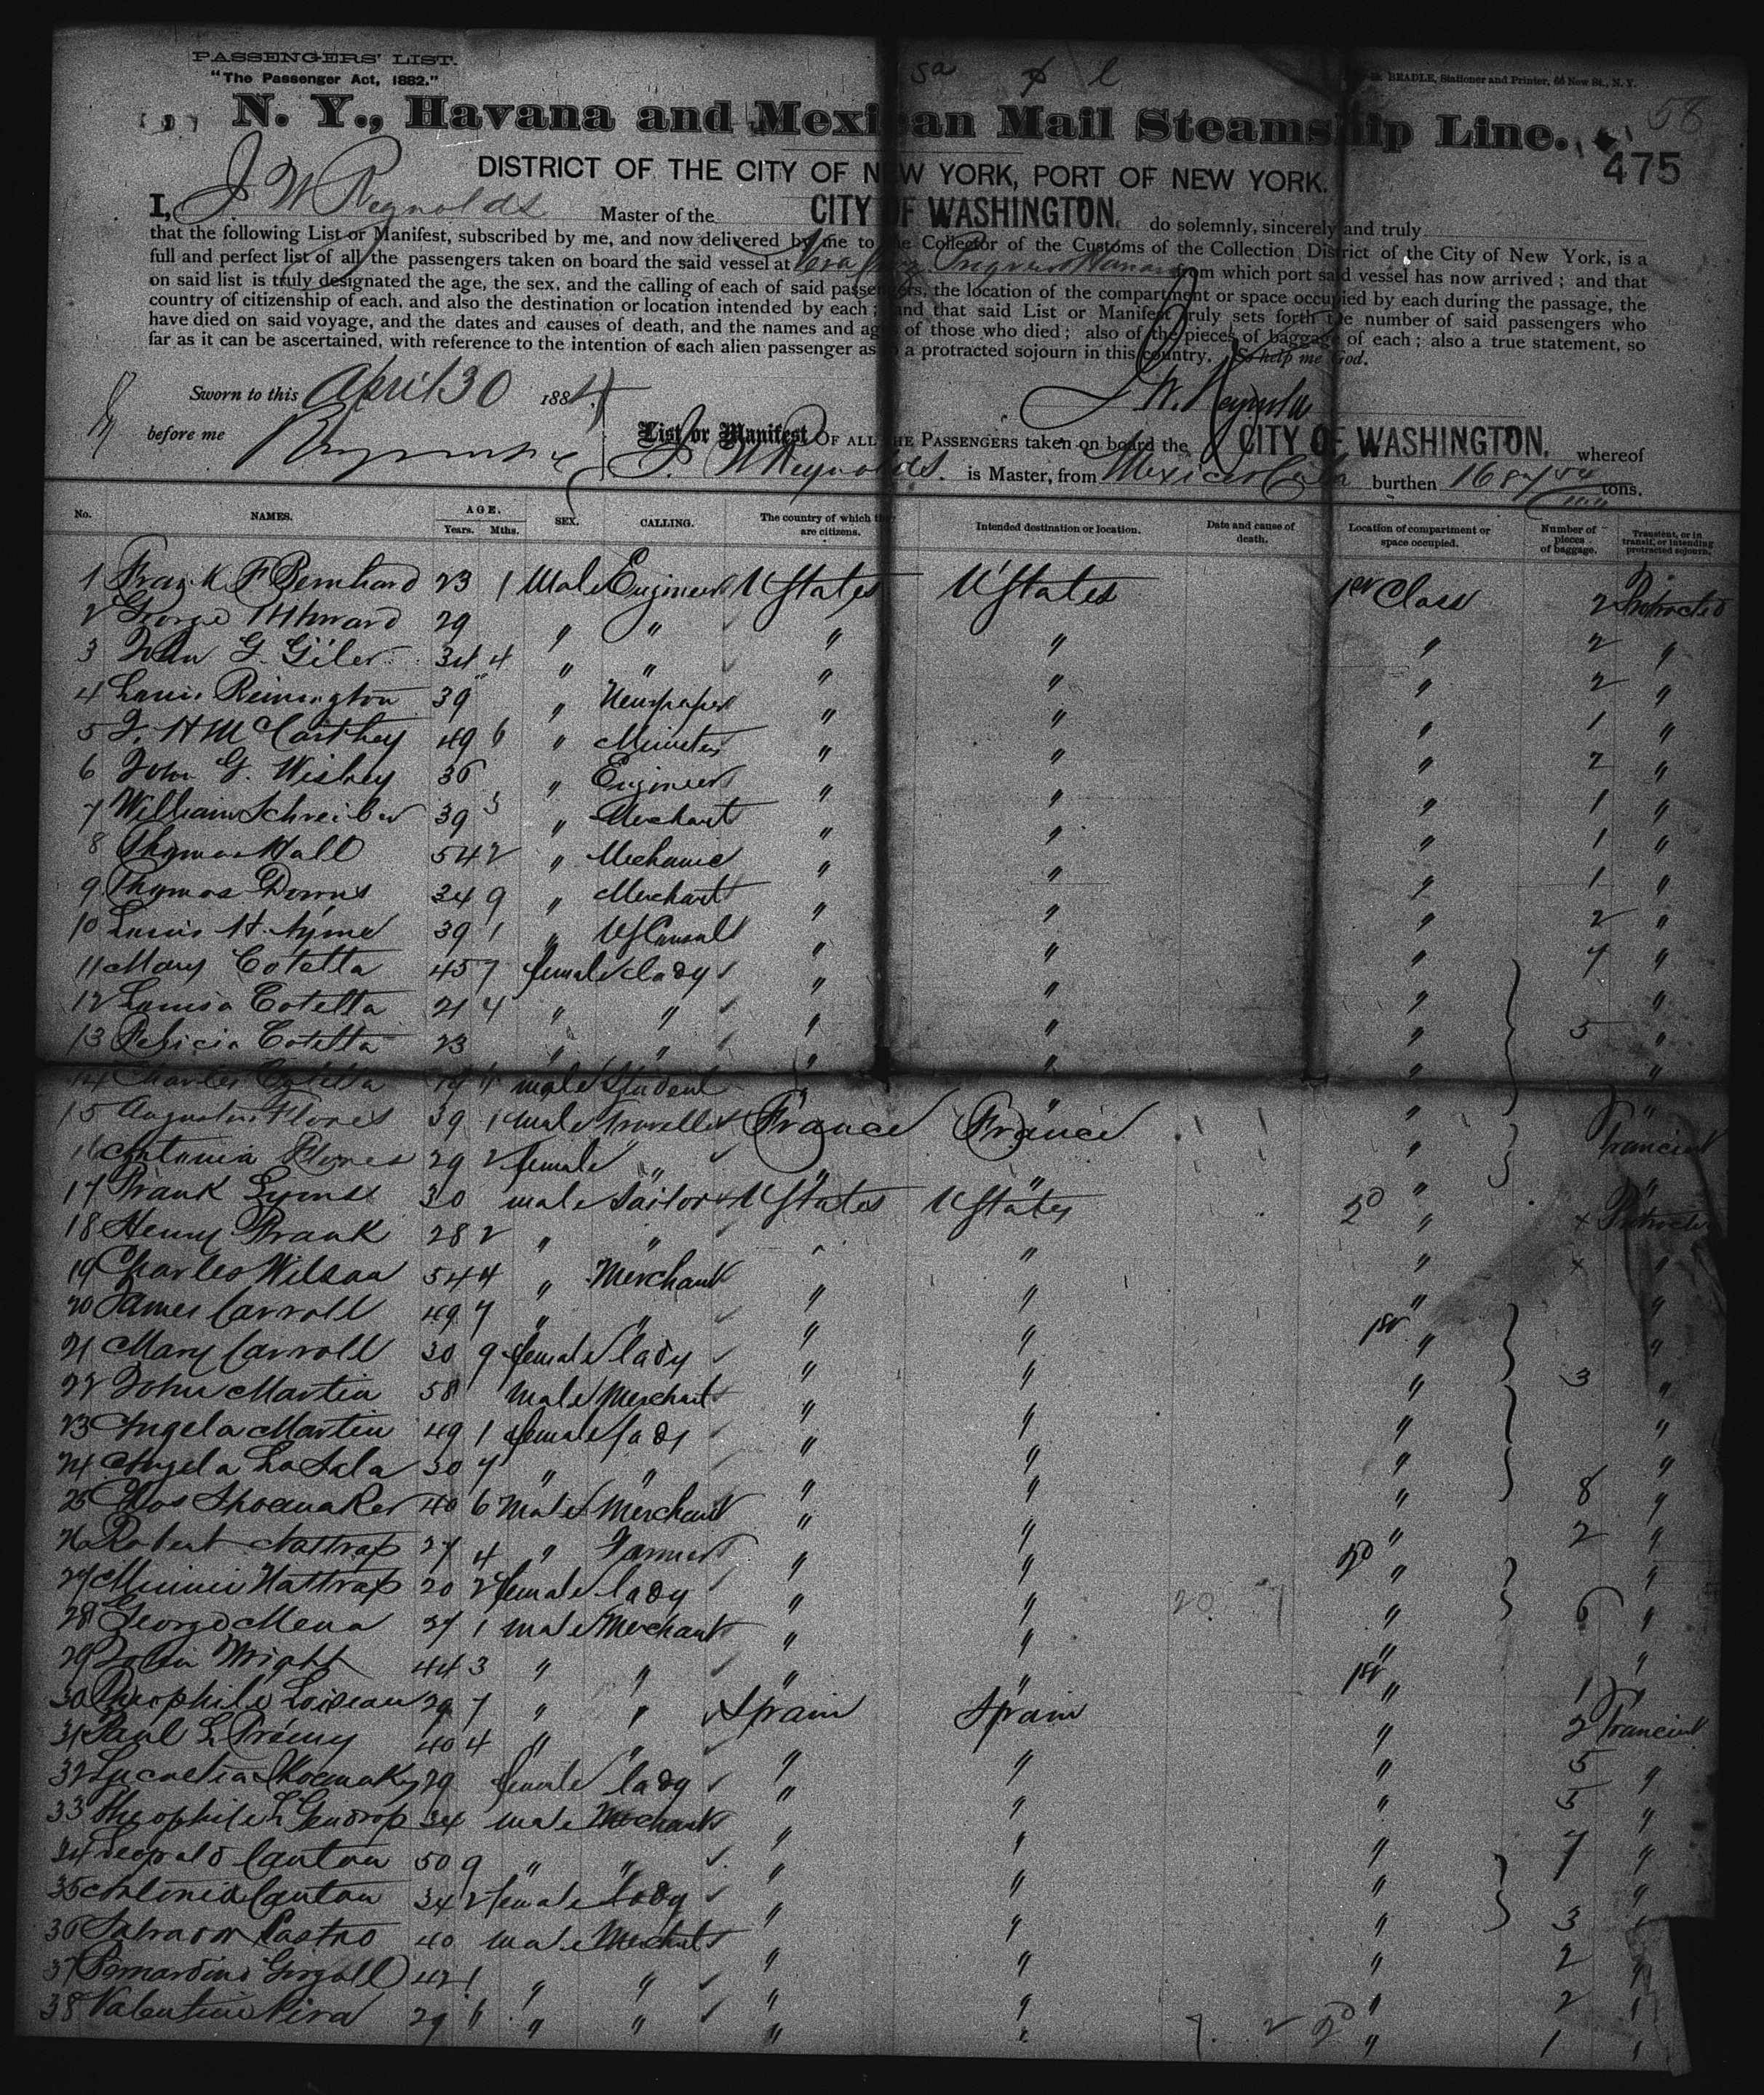 PASSENGERS' LIST.
"The Passenger Act, 1882."
BEADLE, Stationer and Printer, 66 New St., N. Y.
58
N. Y., Havana and Mexican Mail Steamship Line.
475
DISTRICT OF THE CITY OF NEW YORK, PORT OF NEW YORK.
I, J W Reynolds Master of the CITY OF WASHINGTON, do solemnly, sincerely and truly
that the following List or Manifest, subscribed by me, and now delivered by me to the Collector of the Customs of the Collection District of the City of New York, is a
full and perfect list of all the passengers taken on board the said vessel at Vera Cruz from which port said vessel has now arrived; and that
on said list is truly designated the age, the sex, and the calling of each of said passengers, the location of the compartment or space occupied by each during the passage, the
country of citizenship of each, and also the destination or location intended by each; and that said List or Manifest truly sets forth the number of said passengers who
have died on said voyage, and the dates and causes of death, and the names and ages of those who died; also of the pieces of baggage of each; also a true statement, so
far as it can be ascertained, with reference to the intention of each alien passenger as to a protracted sojourn in this country. So help me God.
Sworn to this April 30 1884
J. W. Reynolds
before me
List or Manifest OF ALL THE PASSENGERS taken on board the CITY OF WASHINGTON, whereof
J W Reynolds. is Master, from Mexico Cuba burthen 1684 tons.
No. NAMES. AGE. Years. Mths. SEX. CALLING. The country of which they are citizens. Intended destination or location. Date and cause of death. Location of compartment or space occupied. Number of pieces of baggage. Transient, or in transit, or intending protracted sojourn.
1 Frank F Bernhard 23 1 Male Engineer U States U States 1st Class 2 Protracted
2 George 29 " " " " " 2 "
3 John G. Giler 34 4 " " " " " 2 "
4 Louis Remington 39 " Newspaper " " " 1 "
5 McCarthey 49 6 " Minister " " " 2 "
6 John G. Wishey 36 " Engineer " " " 1 "
7 William Schreiber 39 3 " Merchant " " " 1 "
8 Thomas Hall 54 2 " Mechanic " " " 1 "
9 Thomas Downs 34 9 " Merchant " " " 2 "
10 Louis H. Ayme 39 1 " US Consul " " " 7 "
11 Mary Cotetta 45 7 female lady " " " "
12 Louisa Cotetta 21 4 " " " " " 5 "
13 Felicia Cotetta 23 " " " " " "
14 Charles Cotetta male Student " " " "
15 Flores 39 1 male Traveller France France " Trancient
16 Antonia Flores 29 2 female " " " " "
17 Frank Lyons 30 male Sailor U States U States 2d " x Protracted
18 Henry Frank 28 2 " " " " x "
19 Charles Wilson 54 4 " Merchant " " " "
20 James Carroll 49 7 " " " " 1st " "
21 Mary Carroll 30 9 female lady " " " 3 "
22 John Martin 58 male Merchant " " " "
23 Angela Martin 49 1 female lady " " " "
24 Angela La Sala 30 7 " " " " " 8 "
25 Chas Shoemaker 40 6 Male Merchant " " " 2 "
26 Robert Nattrap 27 4 " Farmer " " 2d " "
27 Minnie Nattrap 20 2 female lady " " " 6 "
28 George Mena 27 1 male Merchant " " " "
29 Wright 44 3 " " " " 1st " 1 "
30 Theophile Loiseau 29 7 " " Spain Spain " 2 Trancient
31 Paul L 40 4 " " " " " 5 "
32 Lucretia Shoemaker 29 female lady " " " 5 "
33 Theophile L Gendrop 34 male Merchant " " " 7 "
34 Leopold Canton 50 9 " " " " " "
35 Antonia Canton 34 2 female lady " " " 3 "
36 Salvador Castro 40 male Merchant " " " 2 "
37 Bernardino 42 1 " " " " " 2 "
38 Valentine 29 " " " " 2d " 1 "